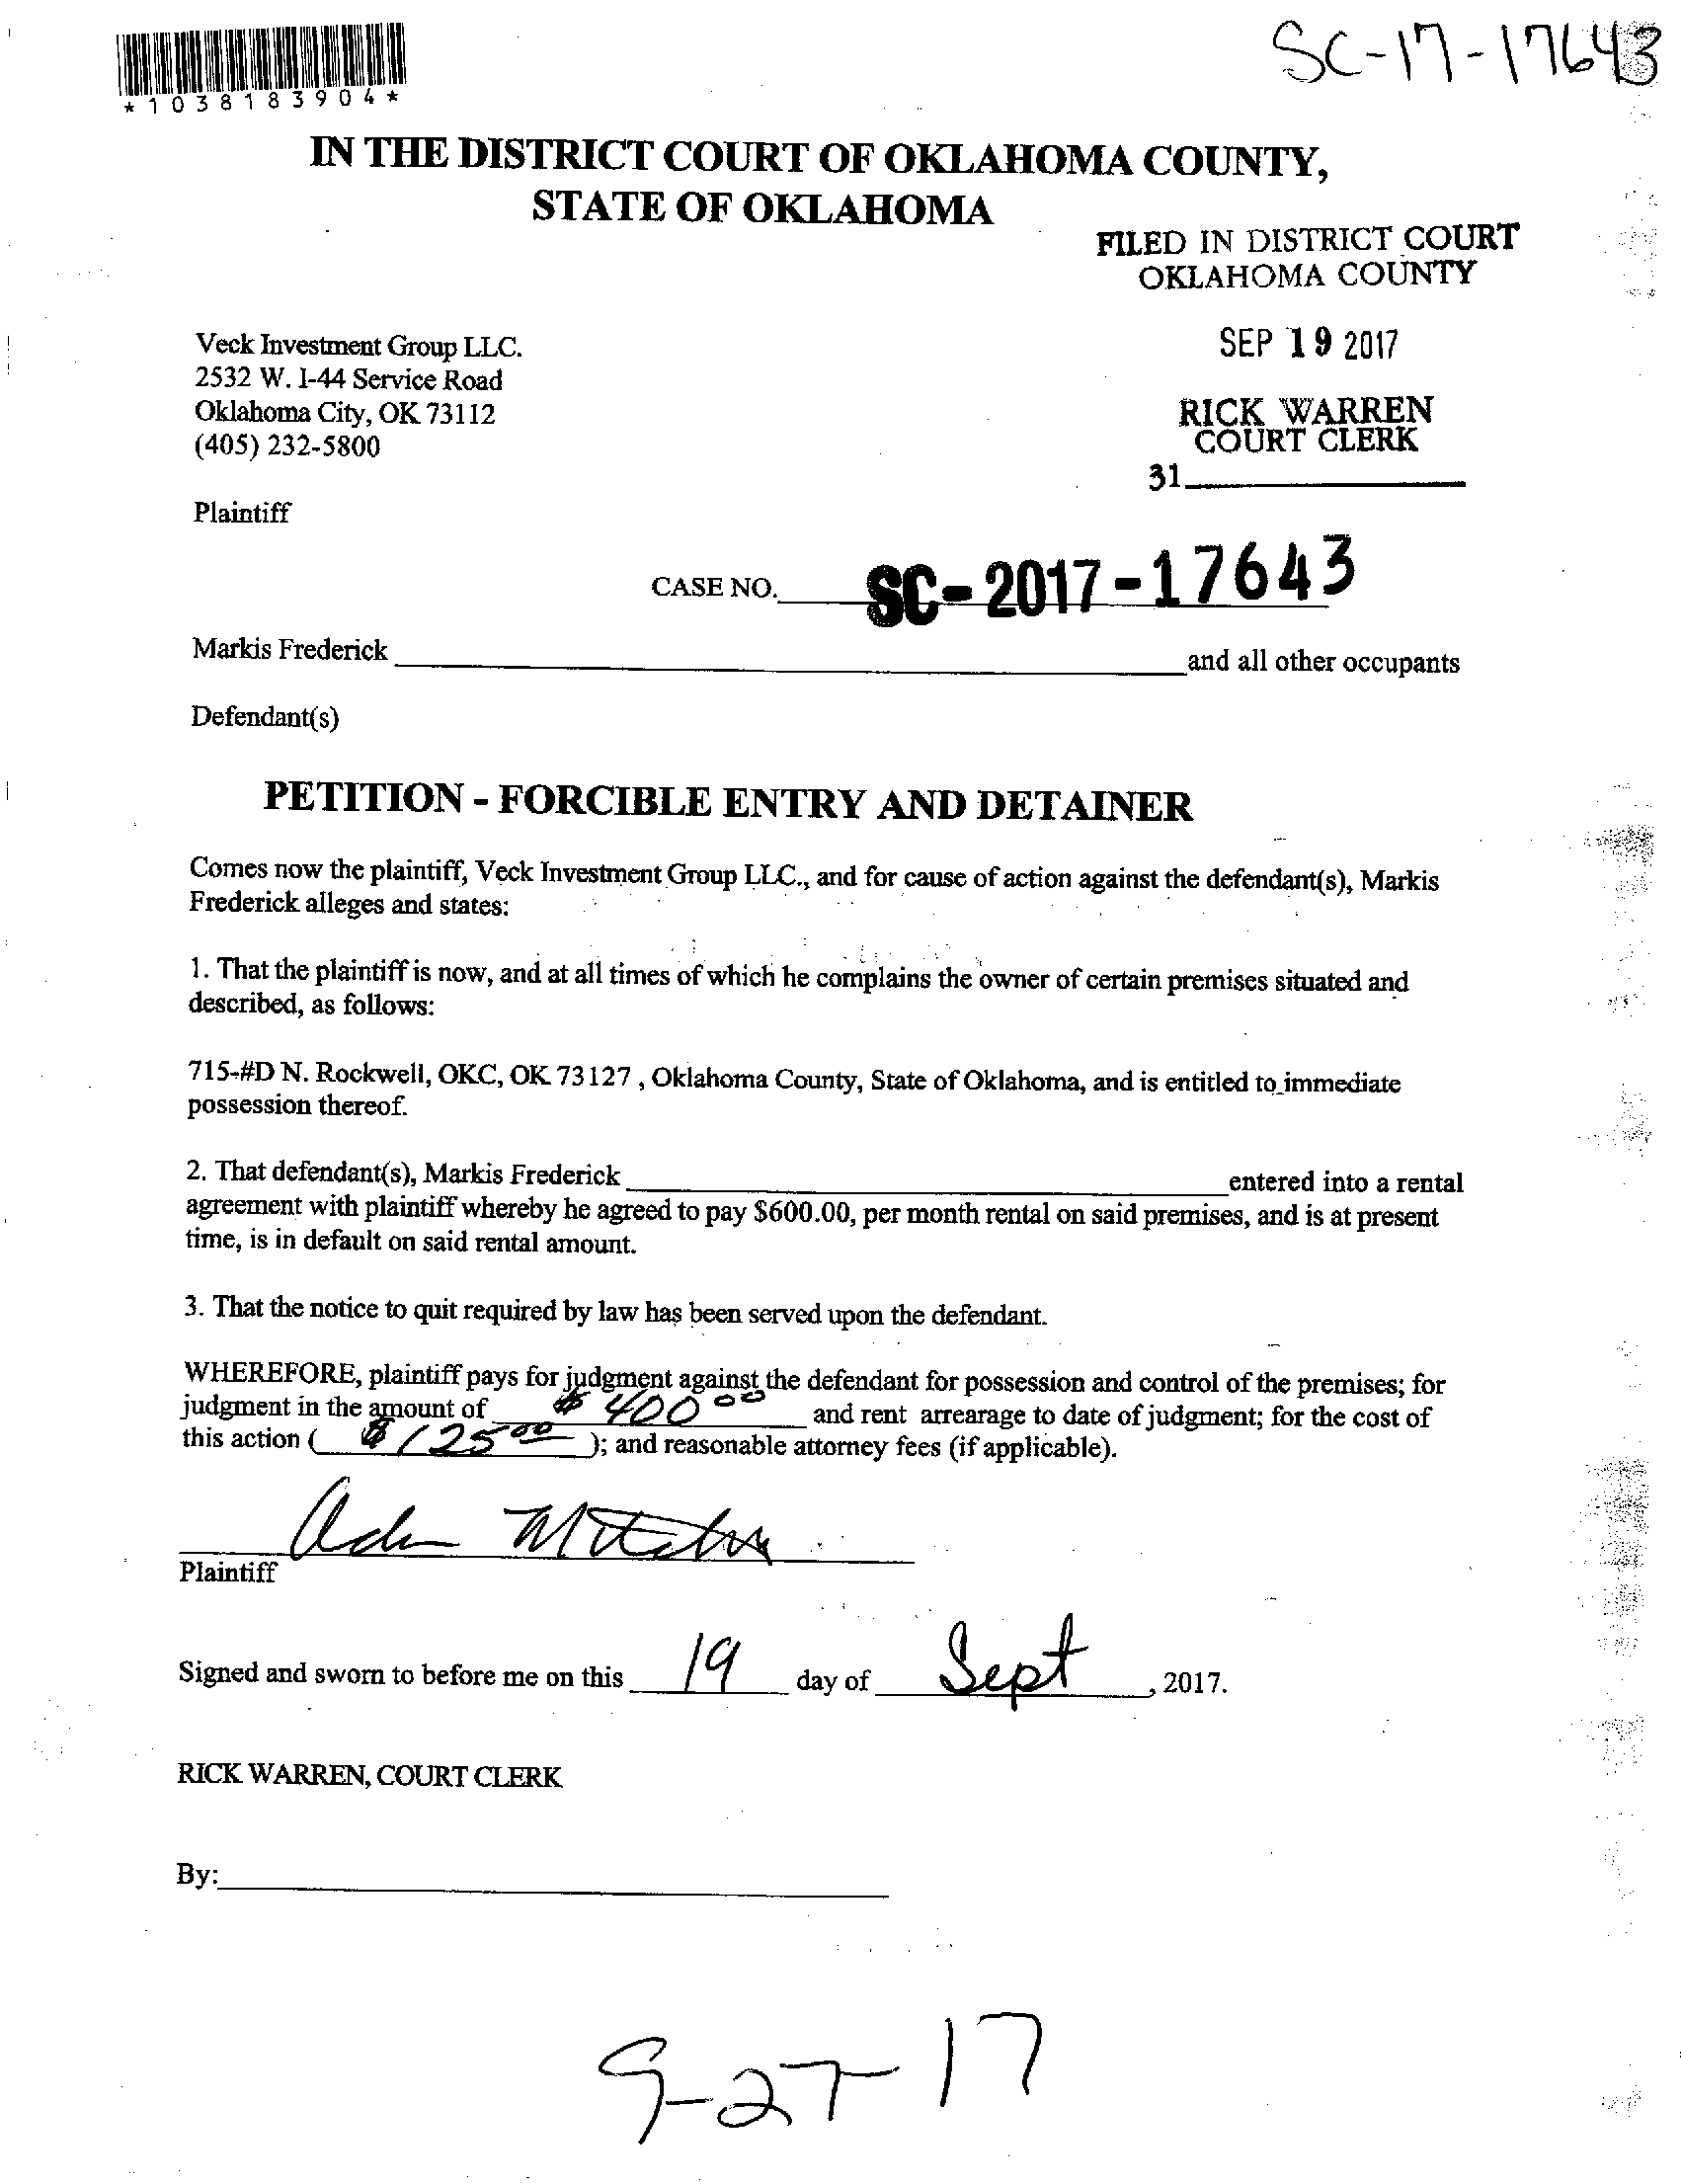 SC-17-17643
*1038183904*
IN THE DISTRICT COURT OF OKLAHOMA COUNTY,
STATE OF OKLAHOMA
FILED IN DISTRICT COURT
OKLAHOMA COUNTY
SEP 19 2017
RICK WARREN
COURT CLERK
31
Veck Investment Group LLC.
2532 W. I-44 Service Road
Oklahoma City, OK 73112
(405) 232-5800
Plaintiff
CASE NO. SC-2017-17643
Markis Frederick and all other occupants
Defendant(s)
PETITION - FORCIBLE ENTRY AND DETAINER
Comes now the plaintiff, Veck Investment Group LLC., and for cause of action against the defendant(s), Markis
Frederick alleges and states:
1. That the plaintiff is now, and at all times of which he complains the owner of certain premises situated and
described, as follows:
715-#D N. Rockwell, OKC, OK 73127 , Oklahoma County, State of Oklahoma, and is entitled to immediate
possession thereof.
2. That defendant(s), Markis Frederick entered into a rental
agreement with plaintiff whereby he agreed to pay $600.00, per month rental on said premises, and is at present
time, is in default on said rental amount.
3. That the notice to quit required by law has been served upon the defendant.
WHEREFORE, plaintiff pays for judgment against the defendant for possession and control of the premises; for
judgment in the amount of $ 400 00 and rent arrearage to date of judgment; for the cost of
this action ( $ 125 00 ); and reasonable attorney fees (if applicable).
Plaintiff
Signed and sworn to before me on this 19 day of Sept , 2017.
RICK WARREN, COURT CLERK
By:
9-27-17